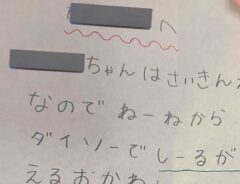 へ
ちゃんはさいきん
なのでねーねから
ダイソーでしーるが
えるおかね